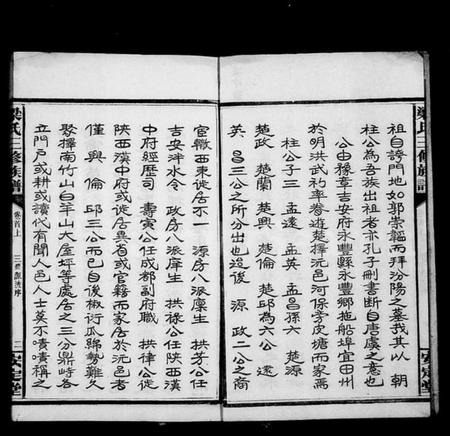 梁氏三修族譜
祖自誇門地如郭崇韜而拜汾陽之墓我其以 朝
柱公為吾族出祖者亦孔子刪書斷自唐虞之意也
公由豫章吉安府永豐縣永豐鄉拖船埠宜田州
於明洪武初率眷遊楚擇沅邑河保旁皮塘而家焉
柱公子三 孟遠 孟英 孟昌孫六 楚源
楚政 楚蘭 楚興 楚倫 楚邱為六公 遠
英 昌三公之所分出也迨後 源 政二公之裔
官轍西東徙居不一 源房八派廩生 拱芳公任
吉安泮水令 政房八派庠生 拱祿公任陝西漢
中府經歷司 壽寅公任成都副府職 拱律公徙
陝西漢中府或徙居異省或官籍而家居於沅邑者
僅 興 倫 邱三公而已自後椒衍瓜綿勢難久
聚擇南竹山白羊山大屋坪等處居之三分鼎峙各
立門戶或耕或讀代有聞人邑人士莫不嘖嘖稱之
梁氏三修族譜
卷首上
三修源流序
二
安定堂